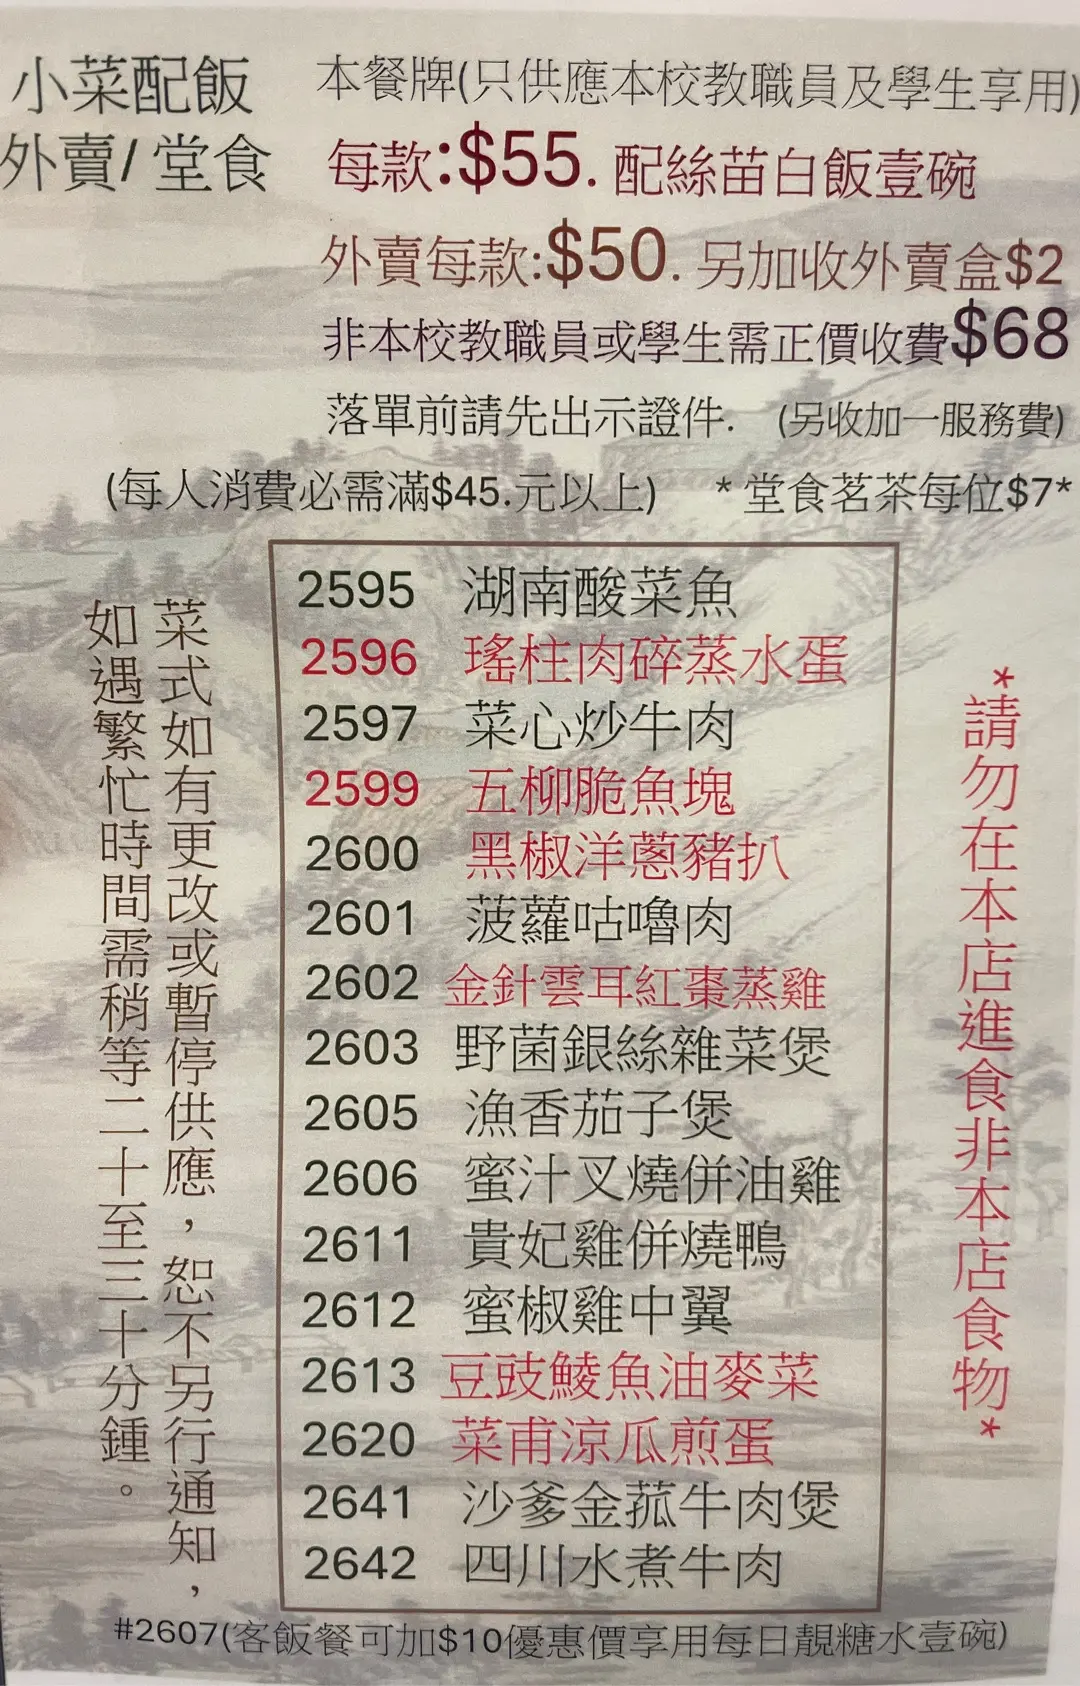 小菜配飯
外賣/堂食
本餐牌(只供應本校教職員及學生享用)
每款:$55. 配絲苗白飯壹碗
外賣每款:$50. 另加收外賣盒$2
非本校教職員或學生需正價收費$68
落單前請先出示證件. (另收加一服務費)
(每人消費必需滿$45.元以上) *堂食茗茶每位$7*
2595 湖南酸菜魚
2596 瑤柱肉碎蒸水蛋
2597 菜心炒牛肉
2599 五柳脆魚塊
2600 黑椒洋蔥豬扒
2601 菠蘿咕嚕肉
2602 金針雲耳紅棗蒸雞
2603 野菌銀絲雜菜煲
2605 漁香茄子煲
2606 蜜汁叉燒併油雞
2611 貴妃雞併燒鴨
2612 蜜椒雞中翼
2613 豆豉鯪魚油麥菜
2620 菜甫涼瓜煎蛋
2641 沙爹金菰牛肉煲
2642 四川水煮牛肉
菜式如有更改或暫停供應，恕不另行通知，
如遇繁忙時間需稍等二十至三十分鍾。
*請勿在本店進食非本店食物*
#2607(客飯餐可加$10優惠價享用每日靚糖水壹碗)